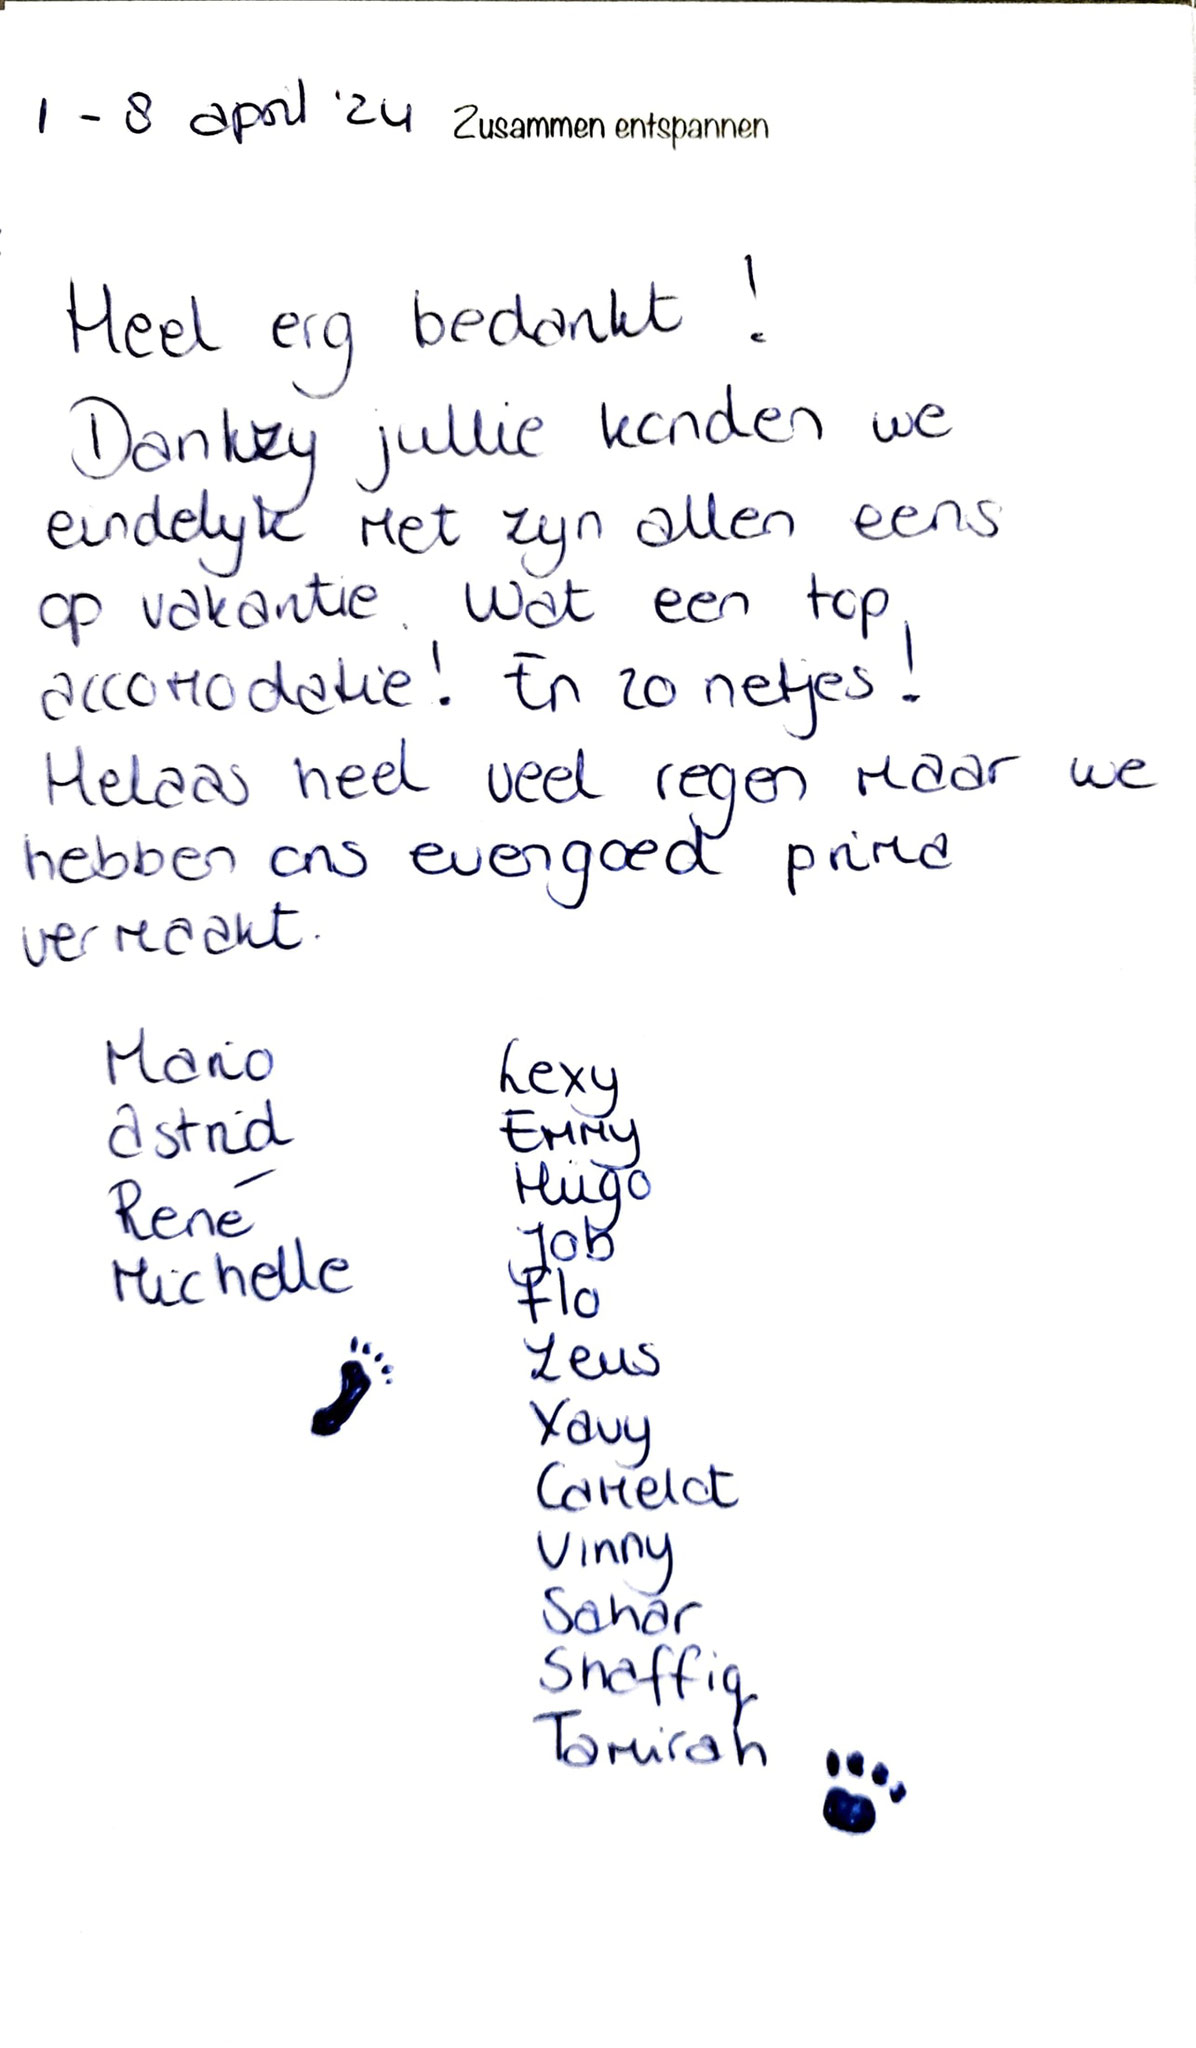 1 - 8 april '24 Zusammen entspannen
Heel erg bedankt !
Dankzy jullie konden we
eindelyk met zyn allen eens
op vakantie. Wat een top
accomodatie! En zo netjes!
Helaas heel veel regen maar we
hebben ons evengoed prima
vermaakt.
Mario
Astrid
René
Michelle
Lexy
Emmy
Hugo
Job
Flo
Zeus
Xavy
Camelot
Vinny
Sahar
Shaffiq
Tamirah